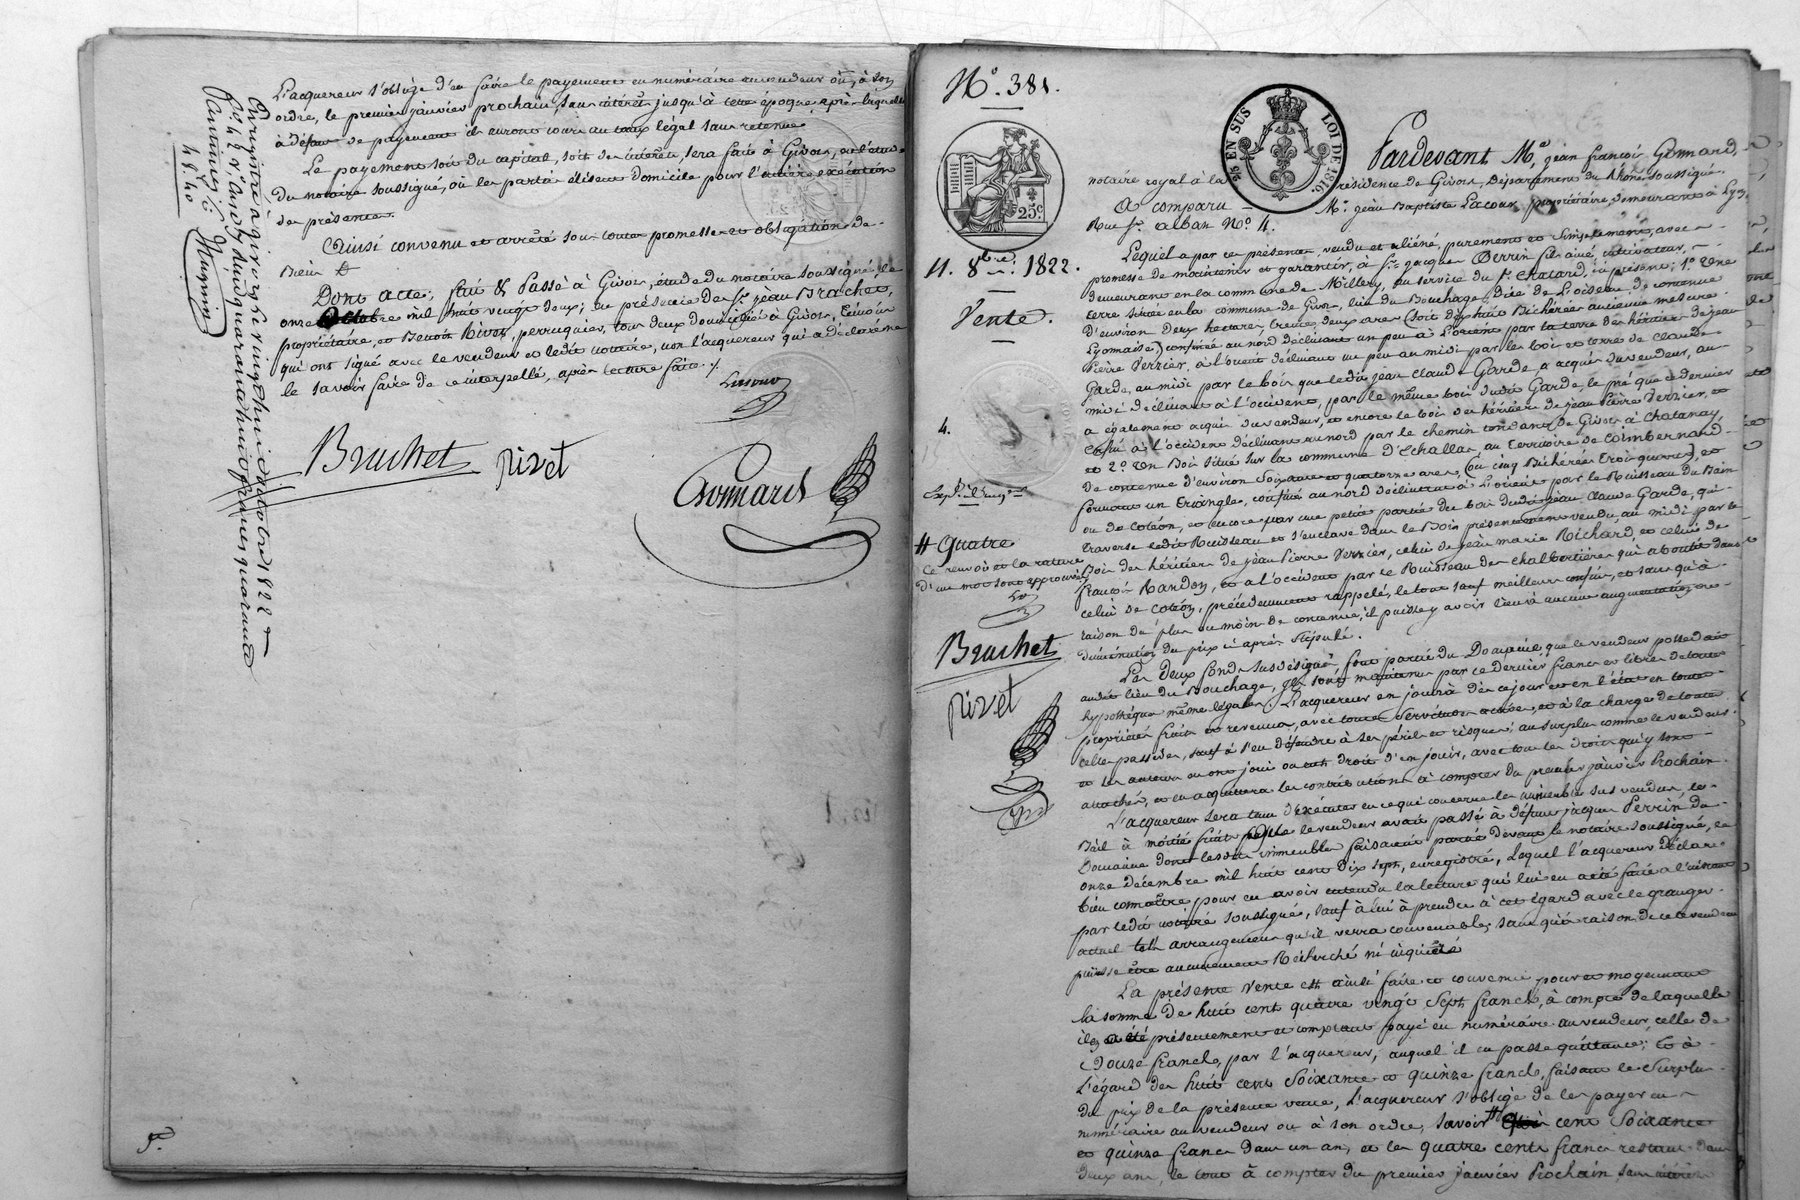 L'acquereur s'oblige d'en faire le payement en numéraire au vendeur ou à son
ordre, le premier janvier prochain, sans intérêt jusqu'à cette époque après laquelle
à défaut de payement ils auront cours au taux légal sans retenue.
Le payement soit du capital, soit des intérêts, sera fait à Givors, en l'étude
du notaire soussigné, où les parties élisent domicile pour l'entière exécution
des présentes.
Ainsi convenu et arrêté sous toutes promesses et obligations de
Bien
Dont acte, fait & Passé à Givors, étude du notaire soussigné, le
onze octobre mil huit cent vingt deux; en présence de Sr jean Brachet,
propriétaire, et Benoit Pivot, perruquier, tous deux domiciliés à Givors, témoins
qui ont signé avec le vendeur et ledit notaire, non l'acquereur qui a déclaré ne
le savoir faire de ce interpellé, après lecture faite ./.
Lacour
Brachet
pivet
Gonnard
Enregistré à givors le vingt huit octobre 1822
48.40
N.° 381.
25.c
EN SUS
LOI DE 1816.
11. 8bre 1822.
Vente.
4.
# Quatre
ce renvoi et la rature
d'un mot sont approuvés
Brachet
pivet
Pardevant M.e jean françois Gonnard,
notaire royal à la Résidence de Givors, Département du Rhône soussigné.
A comparu M.r jean Baptiste Lacour, propriétaire, demeurant à Lyon,
Rue St. alban N.o 4.
Lequel a par ces présentes, vendu et aliéné, purement et Simplement, avec
promesse de maintenir et garantir, à Sr. jacques Perrin fils ainé, cultivateur,
demeurant en la commune de Millery, au service du Sr. Chatard, ici présent; 1.o Une
terre située en la commune de Givors, lieu du Bouchage, dite de l'oiseau, de contenue
d'environ Deux hectares, trente deux ares (soit dix huit Bicherées ancienne mesure
Lyonnaise) confinée au nord déclinant un peu à l'orient par la terre des héritiers de jean
Pierre Verzier, à l'ouest déclinant un peu au midi par les bois et terres de claude
Garde, au midi par le bois que ledit jean Claude Garde, a acquis du vendeur, au
midi déclinant à l'occident, par le même bois dudit Garde, le pré que ce dernier
a également acquis du vendeur, et encore le bois des héritiers de jean Pierre Verzier, et
enfin à l'occident déclinant au nord par le chemin tendant de Givors à Chatanay,
et 2.o Un Bois situé sur la commune d'Echallas, au territoire de Coimbernard
de contenue d'environ Soixante et quatorze ares, (ou cinq Bicherées trois quarts), et
formant un triangle, confiné au nord déclinant à l'orient par le Ruisseau du Bain
ou de Cotéon, et encore par une petite partie du bois dudit jean Claude Garde, qui
traverse ledit Ruisseau et s'enclave dans le Bois présentement vendu, au midi par le
Bois des héritiers de jean Pierre Verzier, celui de jean marie Richard, et celui de
françois Randon, et à l'occident par le Ruisseau des chalbertières qui aboutit dans
celui de Cotéon, précédemment rappelé, le tout sauf meilleurs confins, et sans qu'à
raison de plus ou moins de contenue, il puisse y avoir lieu à aucune augmentation ou
diminution du prix ci après stipulé.
Les Deux fonds susdésignés, font partie du Domaine que le vendeur possédait
audit lieu du Bouchage, ils sont maintenus par ce dernier francs et libres de toutes
hypothèques même légales. L'acquereur en jouira dès ce jour et en l'état en toute
propriété fruits et revenus, avec toutes servitudes actives, et à la charge de toutes
celles passives, sauf à s'en défendre à ses périls et risques, au surplus comme le vendeur
et ses auteurs en ont joui ou eu droit d'en jouir, avec tous les droits qu'y sont
attachés, et en acquittera les contributions à compter du premier janvier Prochain.
L'acquereur sera tenu d'exécuter en ce qui concerne les immeubles sus vendus, le
Bail à moitié fruits que le vendeur avait passé à défunt jacques Perrin du
Domaine dont lesdits immeubles faisaient partie devant le notaire soussigné, le
onze décembre mil huit cent dix sept, enregistré, Lequel l'acquereur déclare
bien connaitre pour en avoir entendu la lecture qui lui en a été faite à l'instant
par ledit notaire soussigné, sauf à lui à prendre à cet égard avec le granger
actuel tels arrangemens qu'il verra convenables, sans qu'à raison de ce le vendeur
puisse être aucunement Recherché ni inquiété
La présente vente est ainsi faite et convenue pour et moyennant
la somme de huit cent quatre vingt sept francs, à compte de laquelle
il a été présentement et comptant payé en numéraire au vendeur, celle de
Douze francs, par l'acquereur, auquel il en passe quittance; Et à
l'égard des huit cent soixante et quinze francs, faisant le surplus
du prix de la présente vente, L'acquereur s'oblige de les payer en
numéraire au vendeur ou à son ordre, savoir # cent Soixante
et quinze francs dans un an, et les quatre cents francs restant dans
deux ans, le tout à compter du premier janvier Prochain sans intérêts